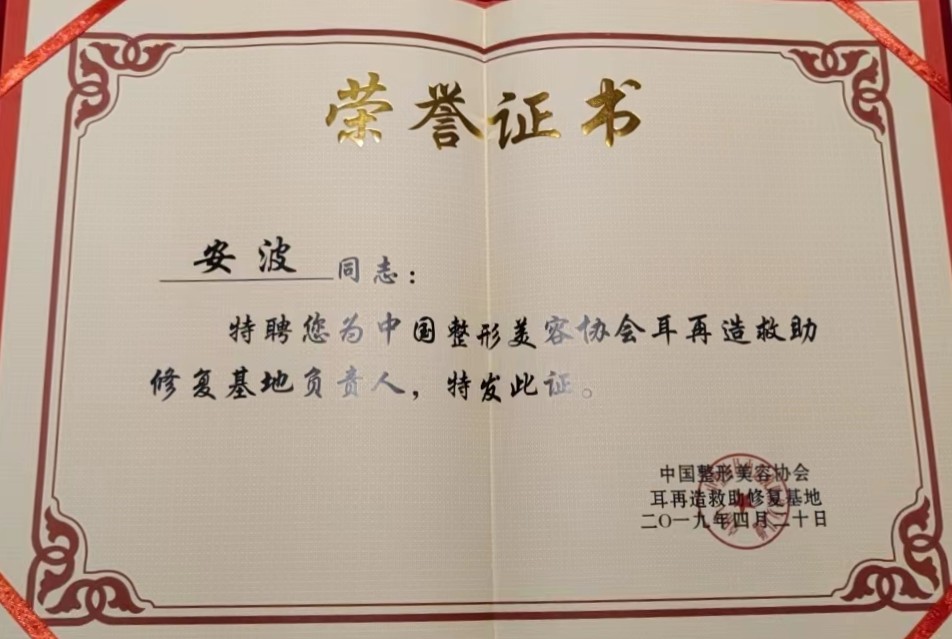 荣誉证书
安波同志：
特聘您为中国整形美容协会耳再造救助
修复基地负责人，特发此证。
中国整形美容协会
耳再造救助修复基地
二〇一九年四月二十日